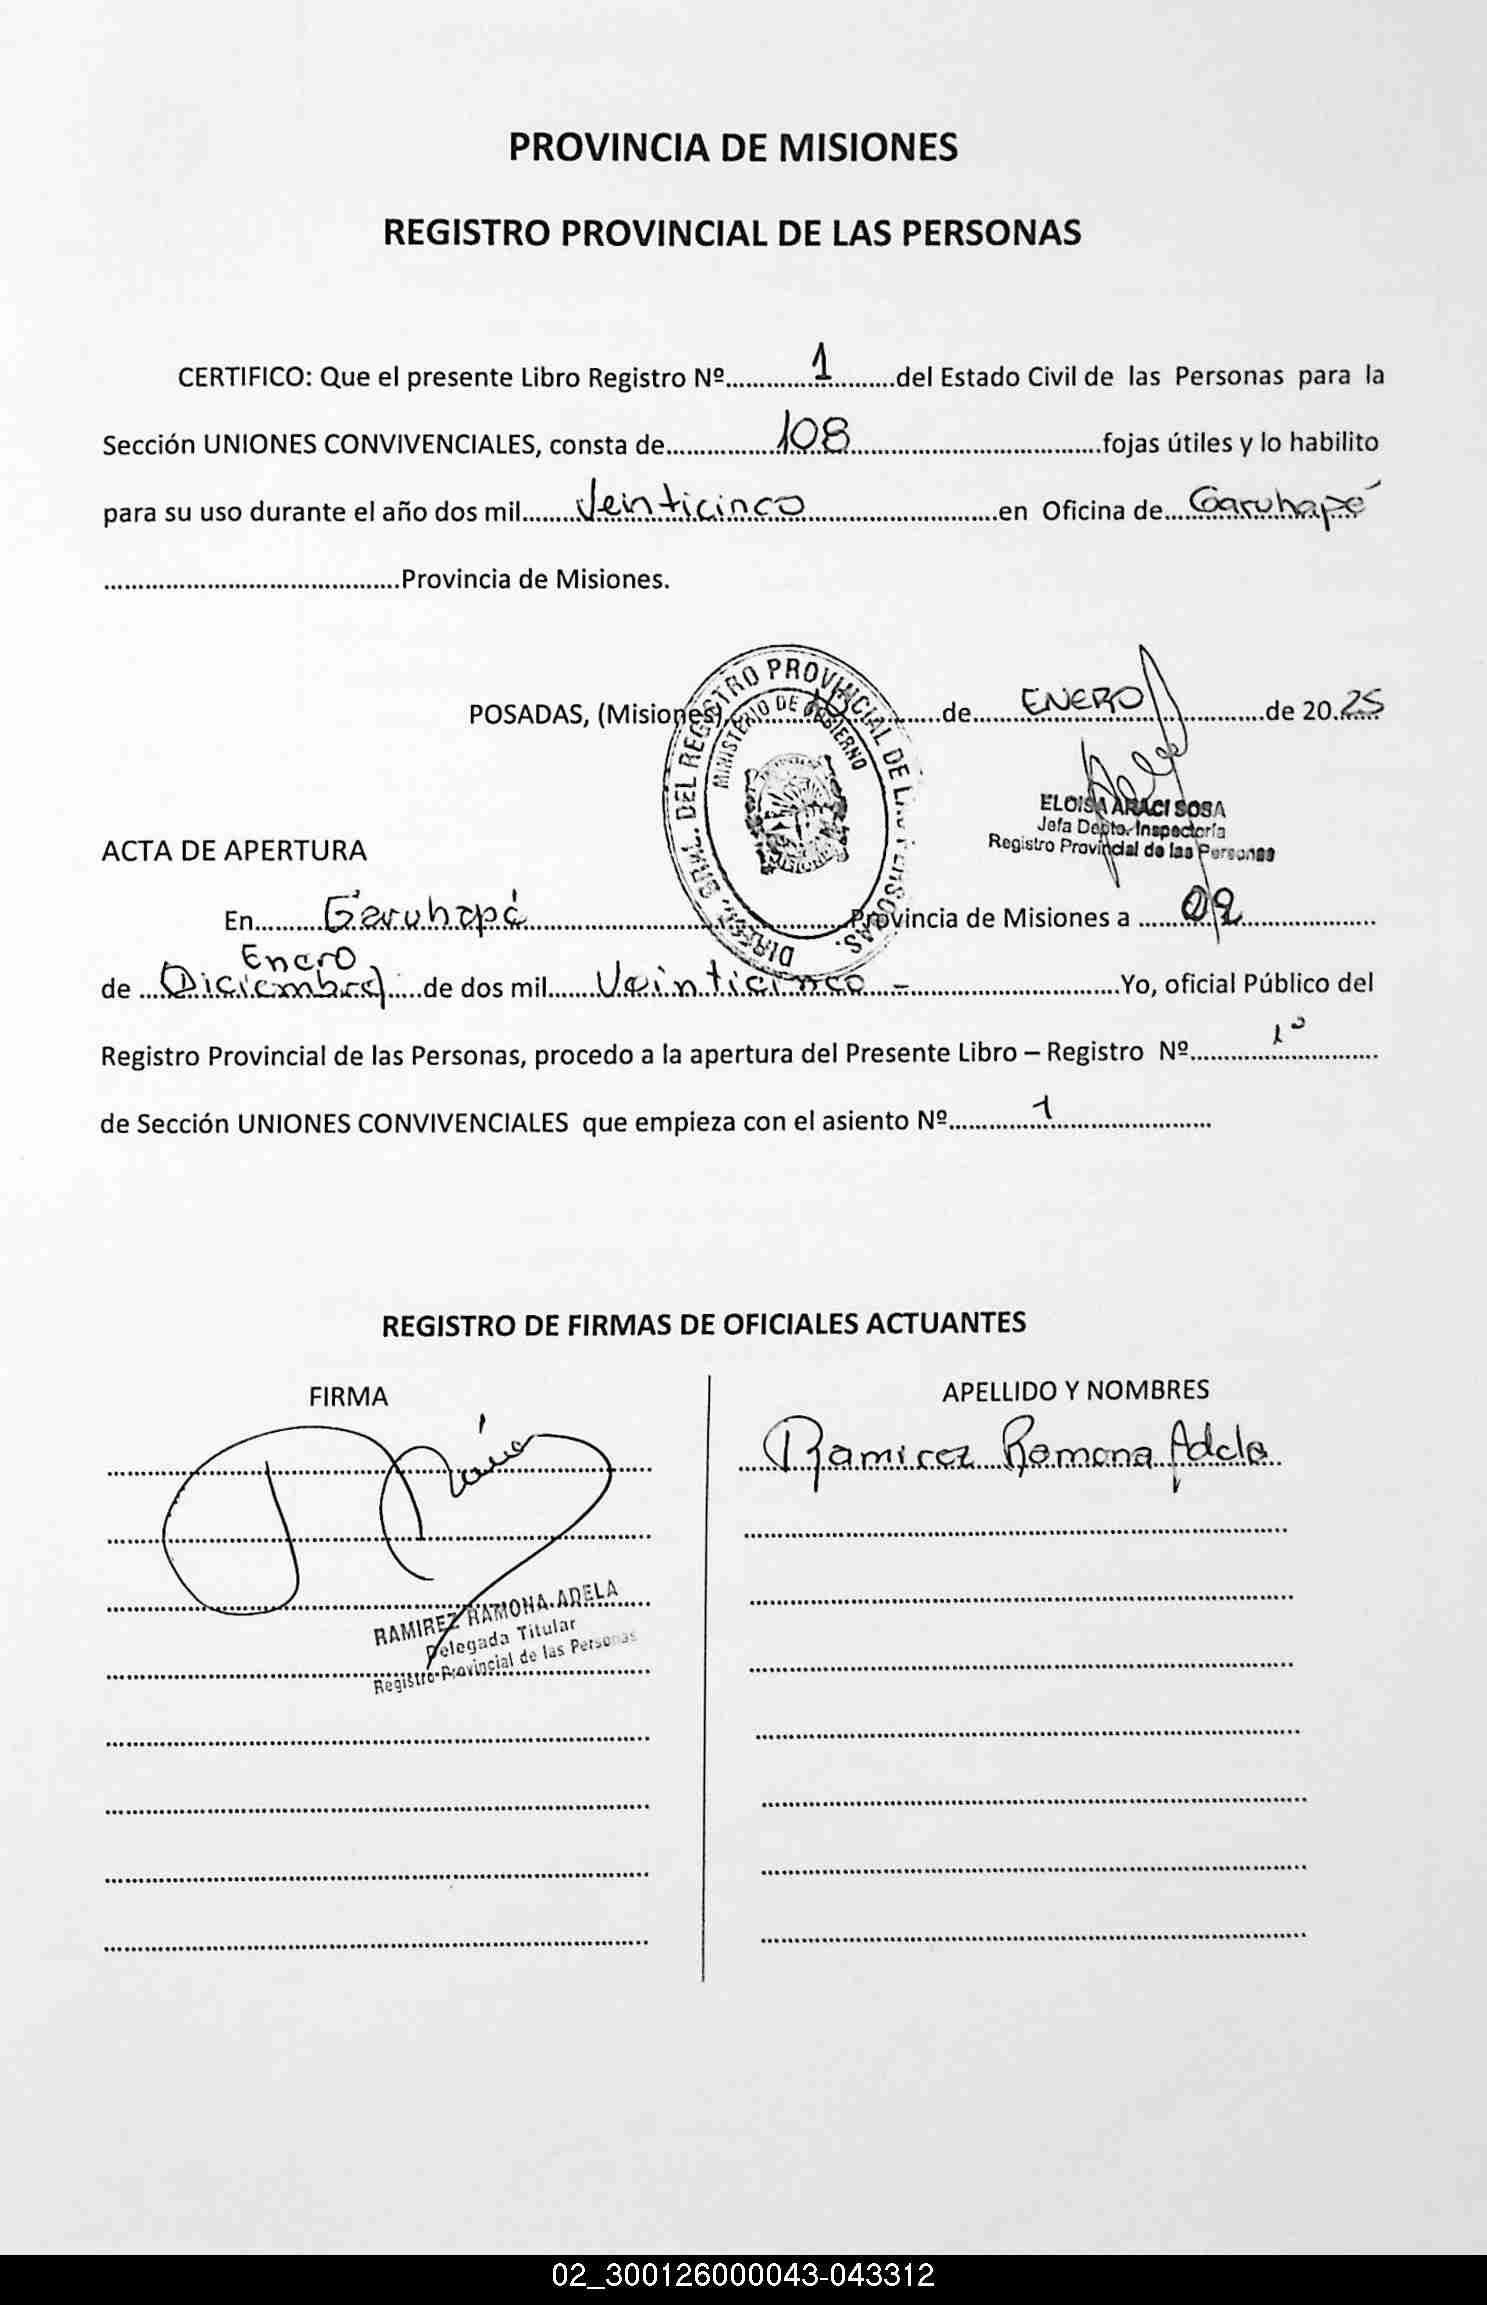 PROVINCIA DE MISIONES
REGISTRO PROVINCIAL DE LAS PERSONAS
CERTIFICO: Que el presente Libro Registro Nº......1......del Estado Civil de las Personas para la
Sección UNIONES CONVIVENCIALES, consta de......108......fojas útiles y lo habilito
para su uso durante el año dos mil......Veinticinco......en Oficina de......Garuhapé
......Provincia de Misiones.
POSADAS, (Misiones)............de......ENERO......de 20.25
DIREC. GRAL. DEL REGISTRO PROVINCIAL DE LAS PERSONAS.
MINISTERIO DE GOBIERNO
MISIONES
ELOISA ARACI SOSA
Jefa Depto. Inspectoría
Registro Provincial de las Personas
ACTA DE APERTURA
En......Garuhapé......Provincia de Misiones a ......02......
Enero
de ...(Diciembre)......de dos mil......Veinticinco.-......Yo, oficial Público del
Registro Provincial de las Personas, procedo a la apertura del Presente Libro – Registro Nº......1º......
de Sección UNIONES CONVIVENCIALES que empieza con el asiento Nº......1......
REGISTRO DE FIRMAS DE OFICIALES ACTUANTES
FIRMA
APELLIDO Y NOMBRES
Ramirez Ramona Adela
RAMIREZ RAMONA ADELA
Delegada Titular
Registro Provincial de las Personas
02_300126000043-043312